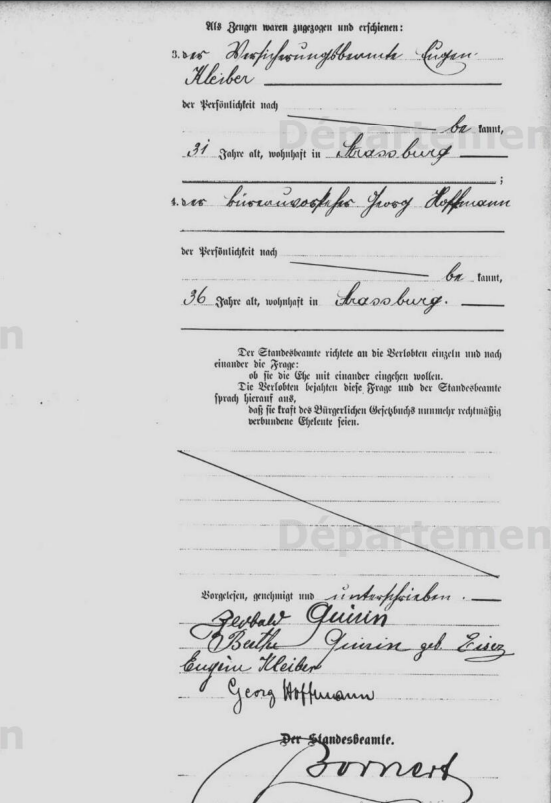 Als Zeugen waren zugezogen und erschienen:
3. der Versicherungsbeamte Eugen
Kleiber
der Persönlichkeit nach
be kannt,
31 Jahre alt, wohnhaft in Strassburg
;
4. der Büreauvorsteher Georg Hoffmann
der Persönlichkeit nach
be kannt,
36 Jahre alt, wohnhaft in Strassburg.
Der Standesbeamte richtete an die Verlobten einzeln und nach
einander die Frage:
ob sie die Ehe mit einander eingehen wollen.
Die Verlobten bejahten diese Frage und der Standesbeamte
sprach hierauf aus,
daß sie kraft des Bürgerlichen Gesetzbuchs nunmehr rechtmäßig
verbundene Eheleute seien.
Vorgelesen, genehmigt und unterschrieben.
Quirin
Quirin geb.
Eugène Kleiber
Georg Hoffmann
Der Standesbeamte.
Bornert
Départemen
Départemen